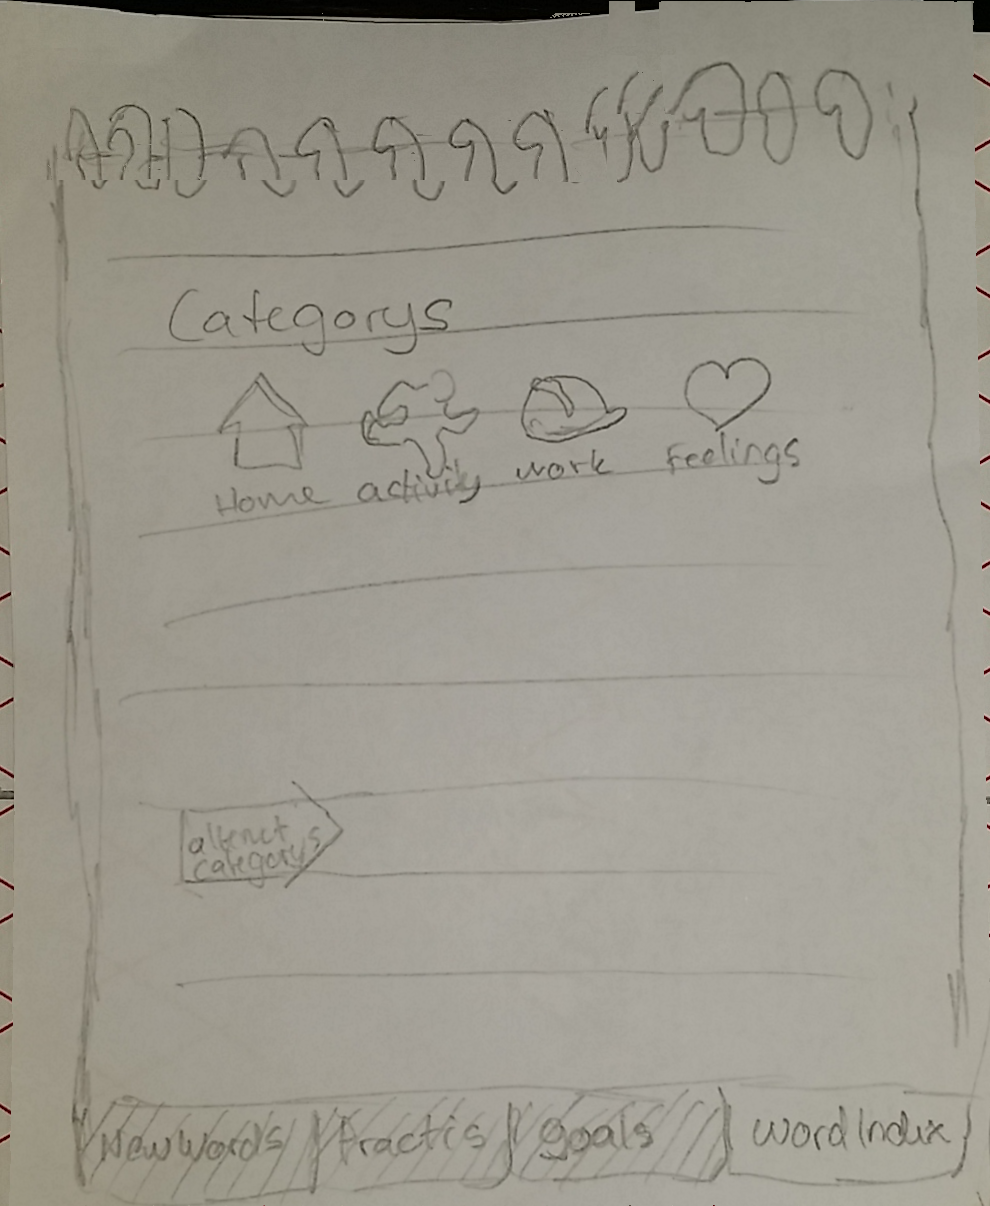 Categorys
Home activity work Feelings
alternct
categorys
New Words Practis goals word Index